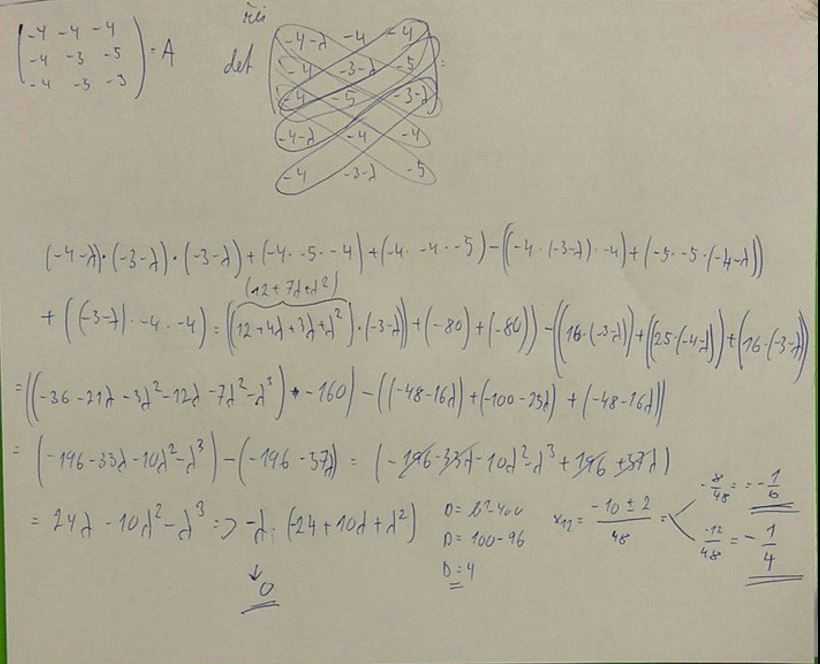 řeš
-4 -4 -4
-4 -3 -5 = A
-4 -5 -3
det
-4-λ -4 -4
-4 -3-λ -5 =
-4 -5 -3-λ
-4-λ -4 -4
-4 -3-λ -5
(-4-λ)·(-3-λ)·(-3-λ)+(-4·-5·-4)+(-4·-4·-5)-((-4·(-3-λ)·-4)+(-5·-5·(-4-λ))
(12+7λ+λ²)
+((-3-λ)·-4·-4) = ((12+4λ+3λ+λ²)·(-3-λ))+(-80)+(-80))-((16·(-3-λ))+((25·(-4-λ))+(16·(-3-λ))
=((-36-21λ-3λ²-12λ-7λ²-λ³)+-160)-((-48-16λ)+(-100-25λ)+(-48-16λ))
=(-196-33λ-10λ²-λ³)-(-196-57λ) = (-196-33λ-10λ²-λ³+196+57λ)
= 24λ-10λ²-λ³ => -λ·(-24+10λ+λ²)
0
D=b²-4ac
D=100-96
D=4
x₁₂= -10±2 / 48 =
-8/48 = = -1/6
-12/48 = -1/4